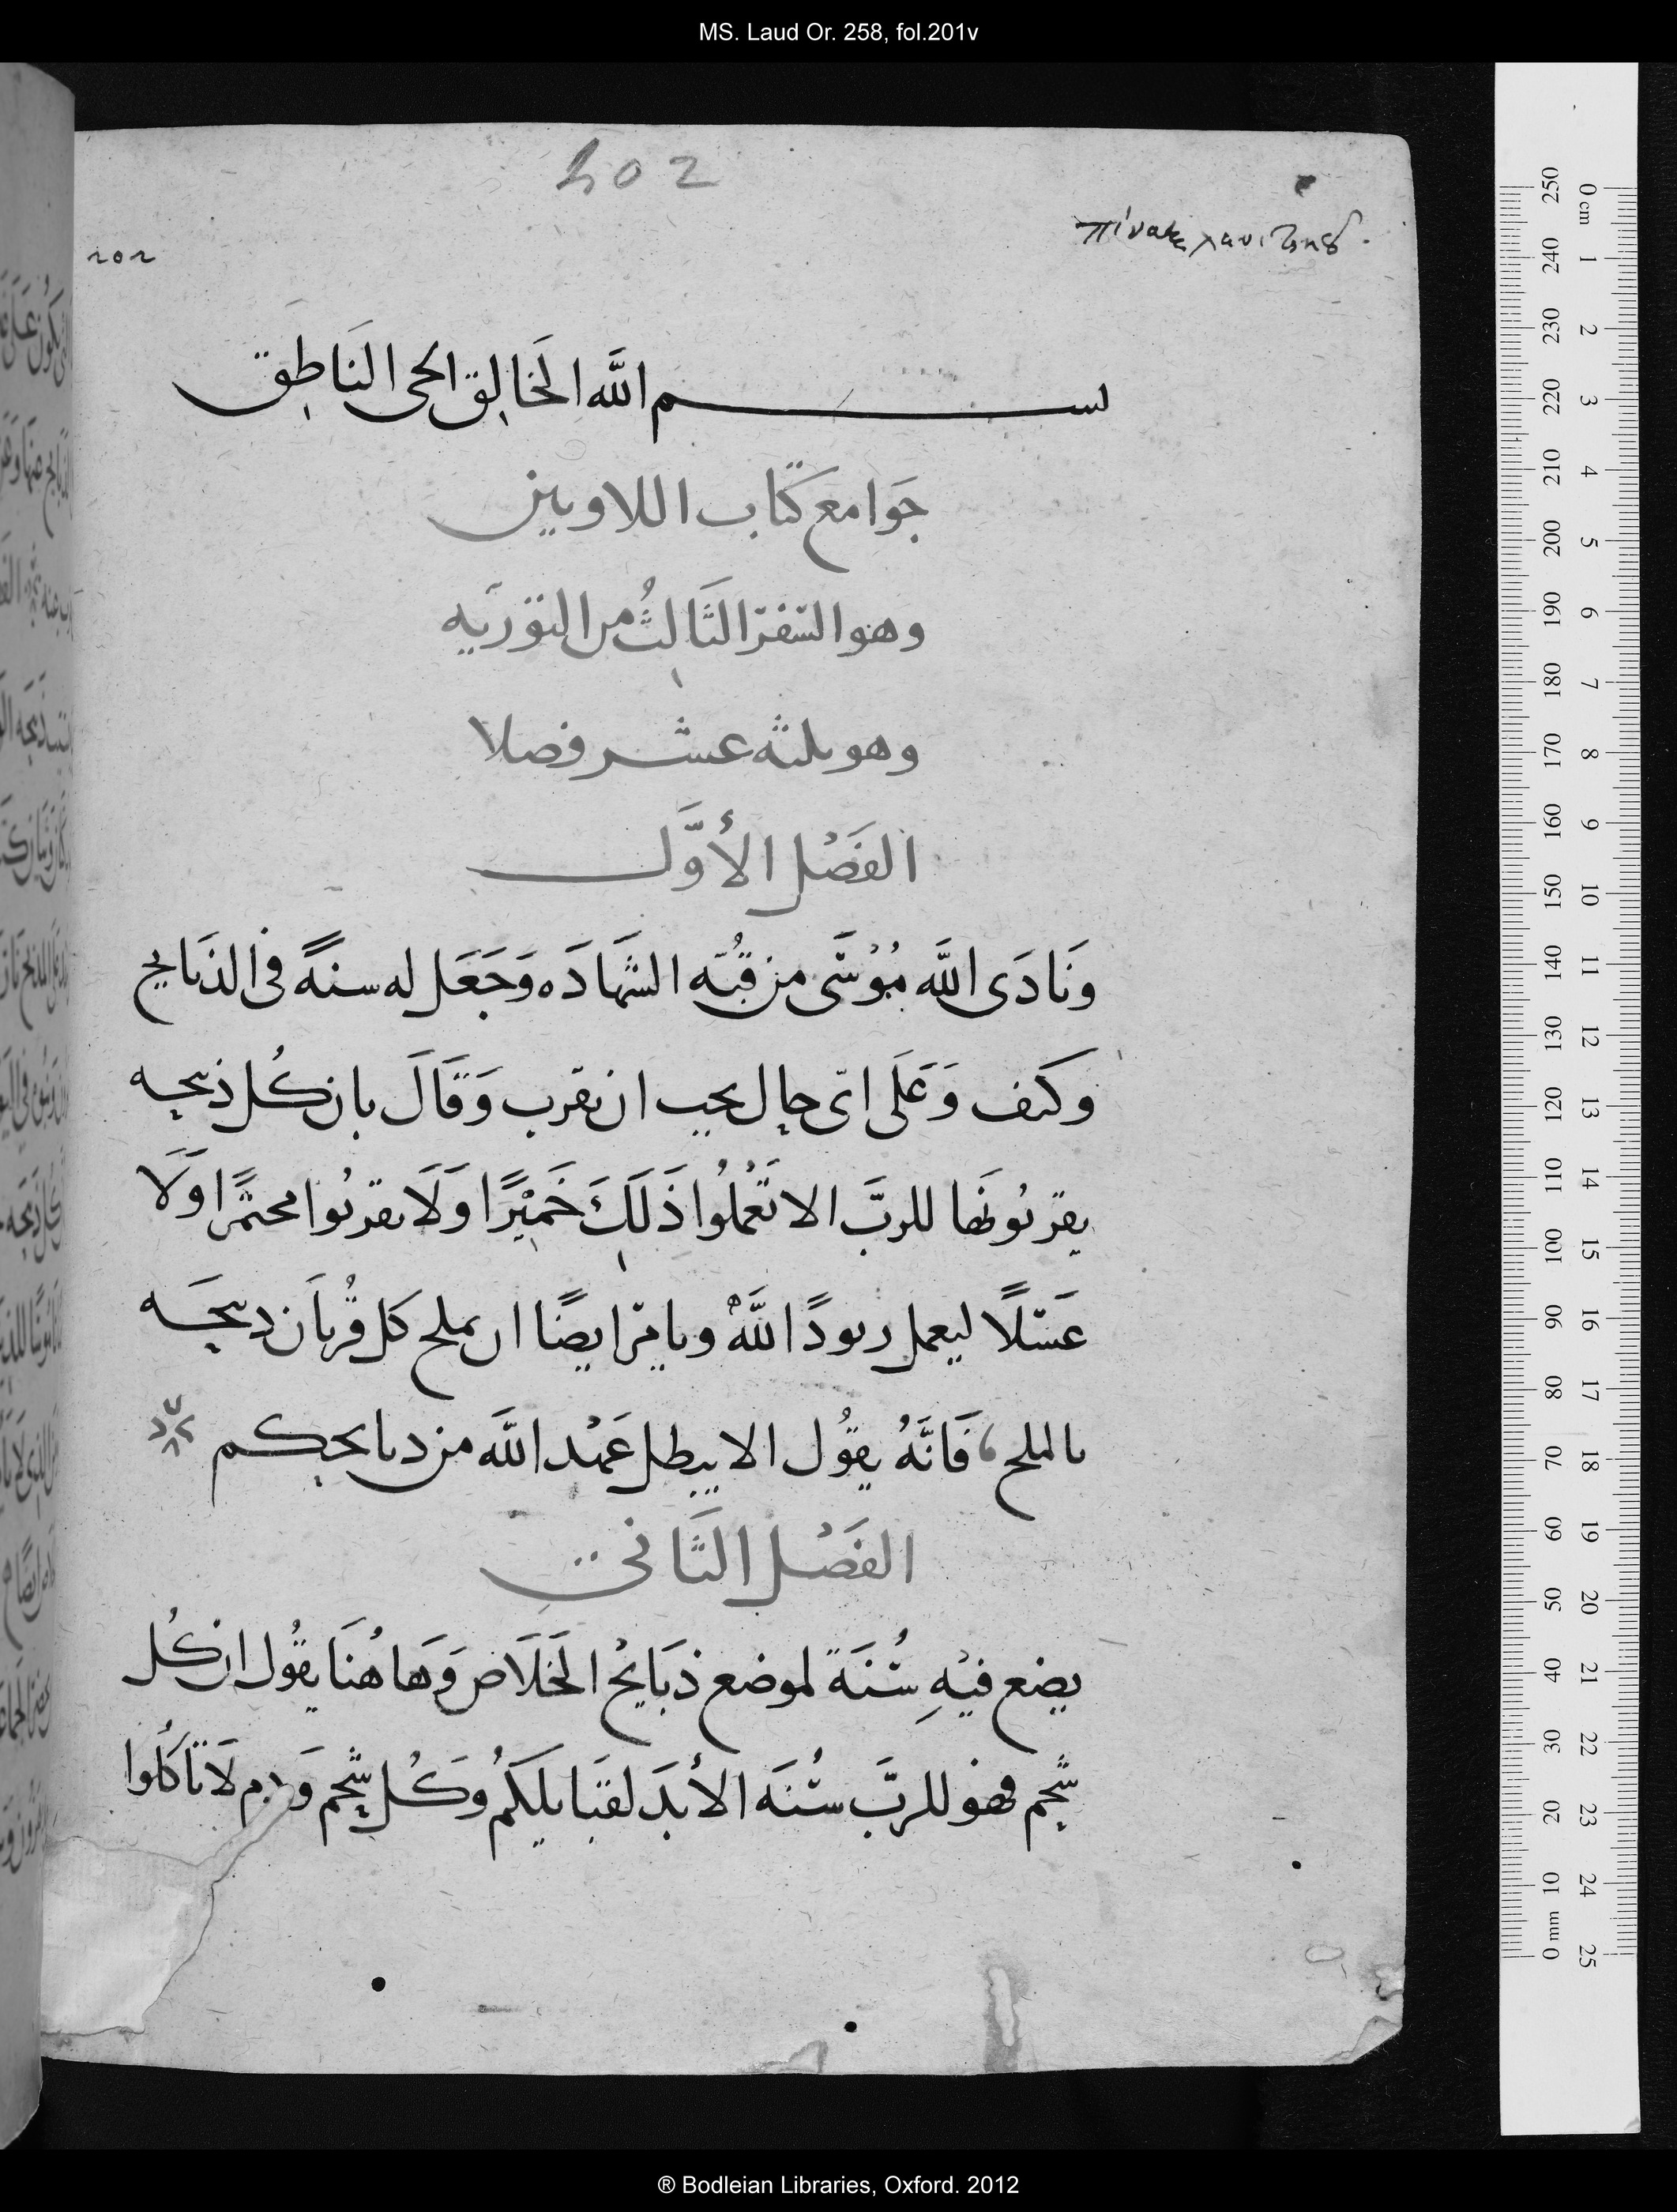 MS. Laud Or. 258, fol.201v
202
πίναξ λευιτικοῦ.
202
بســـــم اللَّه الخَالِق الحى النَاطِق
جَوامع كتَاب اللاويين
وهو السّفر الثَالِثُ من التوريه
وهو ثلثه عشر فصلا
الفَصْل الأوَّل
وَنَادَى اللَّه مُوْسَى من قُبّه الشَهادَه وَجَعَل له سنهً فى الذبَايح
وكيف وَعَلَى اىّ حال يجب ان يقرب وَقَالَ بان كُل ذبيحه
يقربُونهَا للربَّ الا تَعْمَلُوا ذَلِكَ خَميْرًا وَلَا يقربُوا مختمرًا وَلَا
عَسَلًا ليعمل ربودًا للَّه وَيامر ايضًا ان يملح كل قُربَان دبيحَه
بالملح، فَانَّهُ يقُول الا يبطل عَهْد اللَّه من دبايحكم
الفَصْل الثَانى
يضع فيْهِ سُنَة لموضع ذبَايحْ الخَلَاص وَهَاهُنَا يقُول ان كُل
شَحْم فهو للربَّ سُنَه الأبَد لقبَايلكُم وَكُل شَحْم وَدم لَا تَاكلُوا
0 cm 1 2 3 4 5 6 7 8 9 10 11 12 13 14 15 16 17 18 19 20 21 22 23 24 25
250 240 230 220 210 200 190 180 170 160 150 140 130 120 110 100 90 80 70 60 50 40 30 20 10 0 mm
® Bodleian Libraries, Oxford. 2012